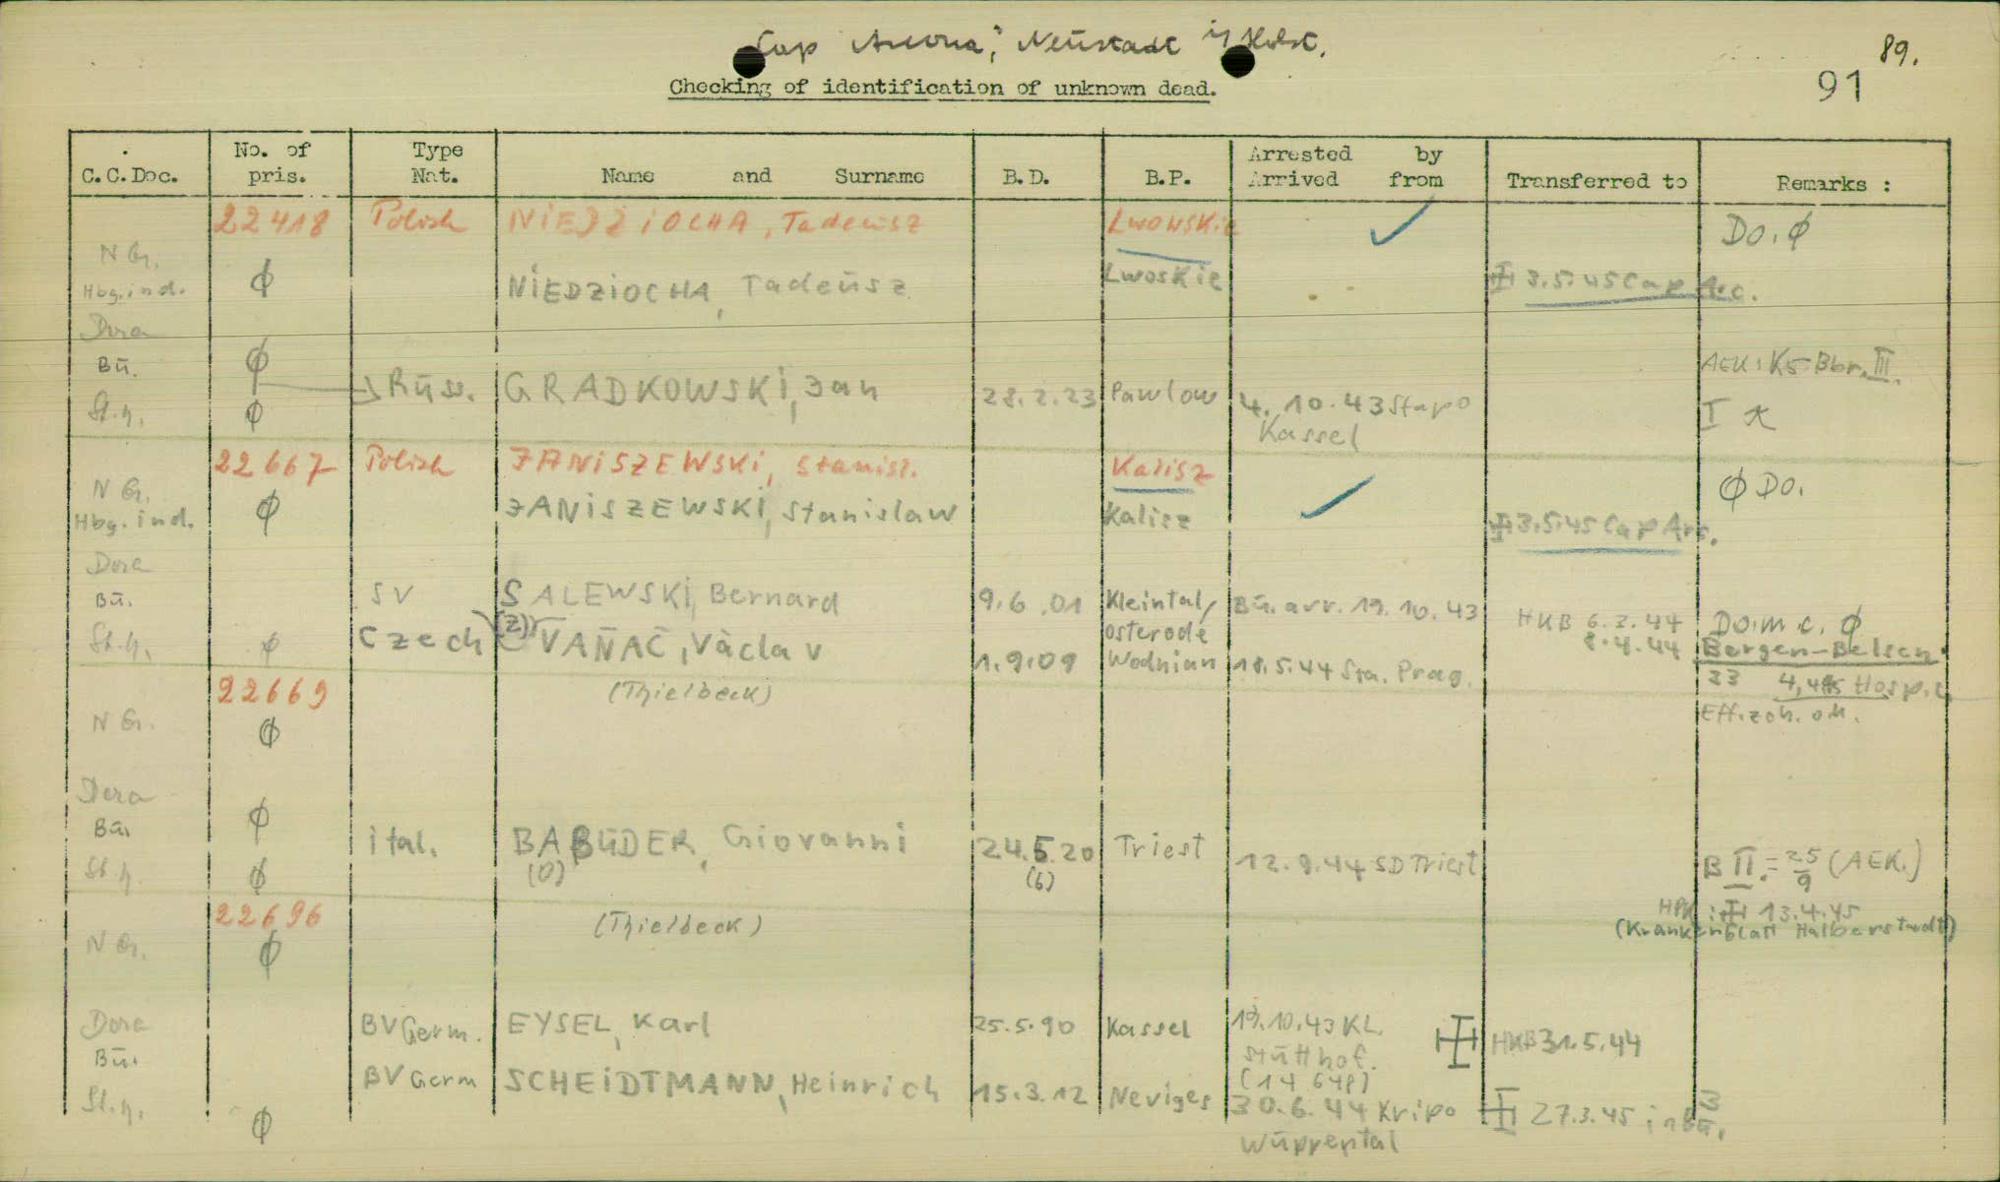 "Cap Arcona", Neustadt i/Holst.
89.
91
Checking of identification of unknown dead.
C.C.Doc. No. of pris. Type Nat. Name and Surname B.D. B.P. Arrested by Arrived from Transferred to Remarks :
22418 Polish NIEDZIOCHA, Tadeusz Lwowskie ✓ Do. ϕ
N G.
Hbg. ind. ϕ NIEDZIOCHA, Tadeusz Lwoskie 3.5.45 Cap Arc.
Dora
Bū. ϕ AEK: K5 Bbr. III.
Rüss. GRADKOWSKI, Jan 28.2.23 Pawlow 4.10.43 Stapo
St.h. ϕ Kassel I
22667 Polish JANISZEWSKI, Stanisl. Kalisz ϕ Do.
N G.
Hbg. ind. ϕ JANISZEWSKI, Stanislaw Kalisz ✓ 3.5.45 Cap Arc.
Dora
Bū. SV SALEWSKI, Bernard 9.6.01 Kleintal/ Bū. arr. 19.10.43 HKB 6.2.44 Do.m.c. ϕ
(Z) Osterode 8.4.44 Bergen-Belsen
St.h. ϕ Czech VAŇAČ, Vàclav 1.9.09 Wodnian 18.5.44 Sta. Prag.
22669 (Thielbeck) 23 4.4.45 Hosp.
N G. ϕ
Dora
Bū. ϕ ital. BABUDER, Giovanni 24.5.20 Triest 12.9.44 SD Triest B II = 25/9 (AEK.)
St.h. ϕ (O) (6)
22696 (Thielbeck) 13.4.45
(Krankenblatt Halberstadt)
N G. ϕ
Dora BV Germ. EYSEL, Karl 25.5.90 Kassel 19.10.43 KL. HKB 31.5.44
Bū. Stutthof.
BV Germ SCHEIDTMANN, Heinrich 15.3.12 Neviges (14 648)
St.h. ϕ 30.6.44 Kripo 27.3.45 in Bū.
Wüppertal